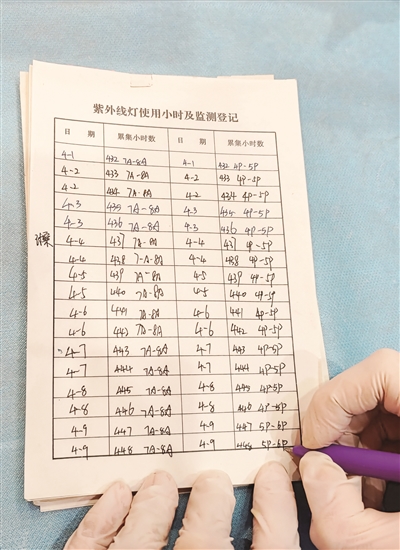 紫外线灯使用小时及监测登记
日 期 累集小时数 日 期 累集小时数
4-1 432 7A-8A 4-1 432 4P-5P
4-2 433 7A-8A 4-2 433 4P-5P
4-2 434 7A-8A 4-2 434 4P-5P
4-3 435 7A-8A 4-3 435 4P-5P
4-3 436 7A-8A 4-3 436 4P-5P
4-4 437 7A-8A 4-4 437 4P-5P
4-4 438 7-A-8A 4-4 438 4P-5P
4-5 439 7A-8A 4-5 439 4P-5P
4-5 440 7A-8A 4-5 440 4P-5P
4-6 441 7A-8A 4-6 441 4P-5P
4-6 443 7A-8A 4-6 442 4P-5P
4-7 443 7A-8A 4-7 443 4P-5P
4-7 444 7A-8A 4-7 444 4P-5P
4-8 445 7A-8A 4-8 445 4P-5P
4-8 446 7A-8A 4-8 446 4P-5P
4-9 447 7A-8A 4-9 447 5P-6P
4-9 448 7A-8A 4-9 448 5P-6P